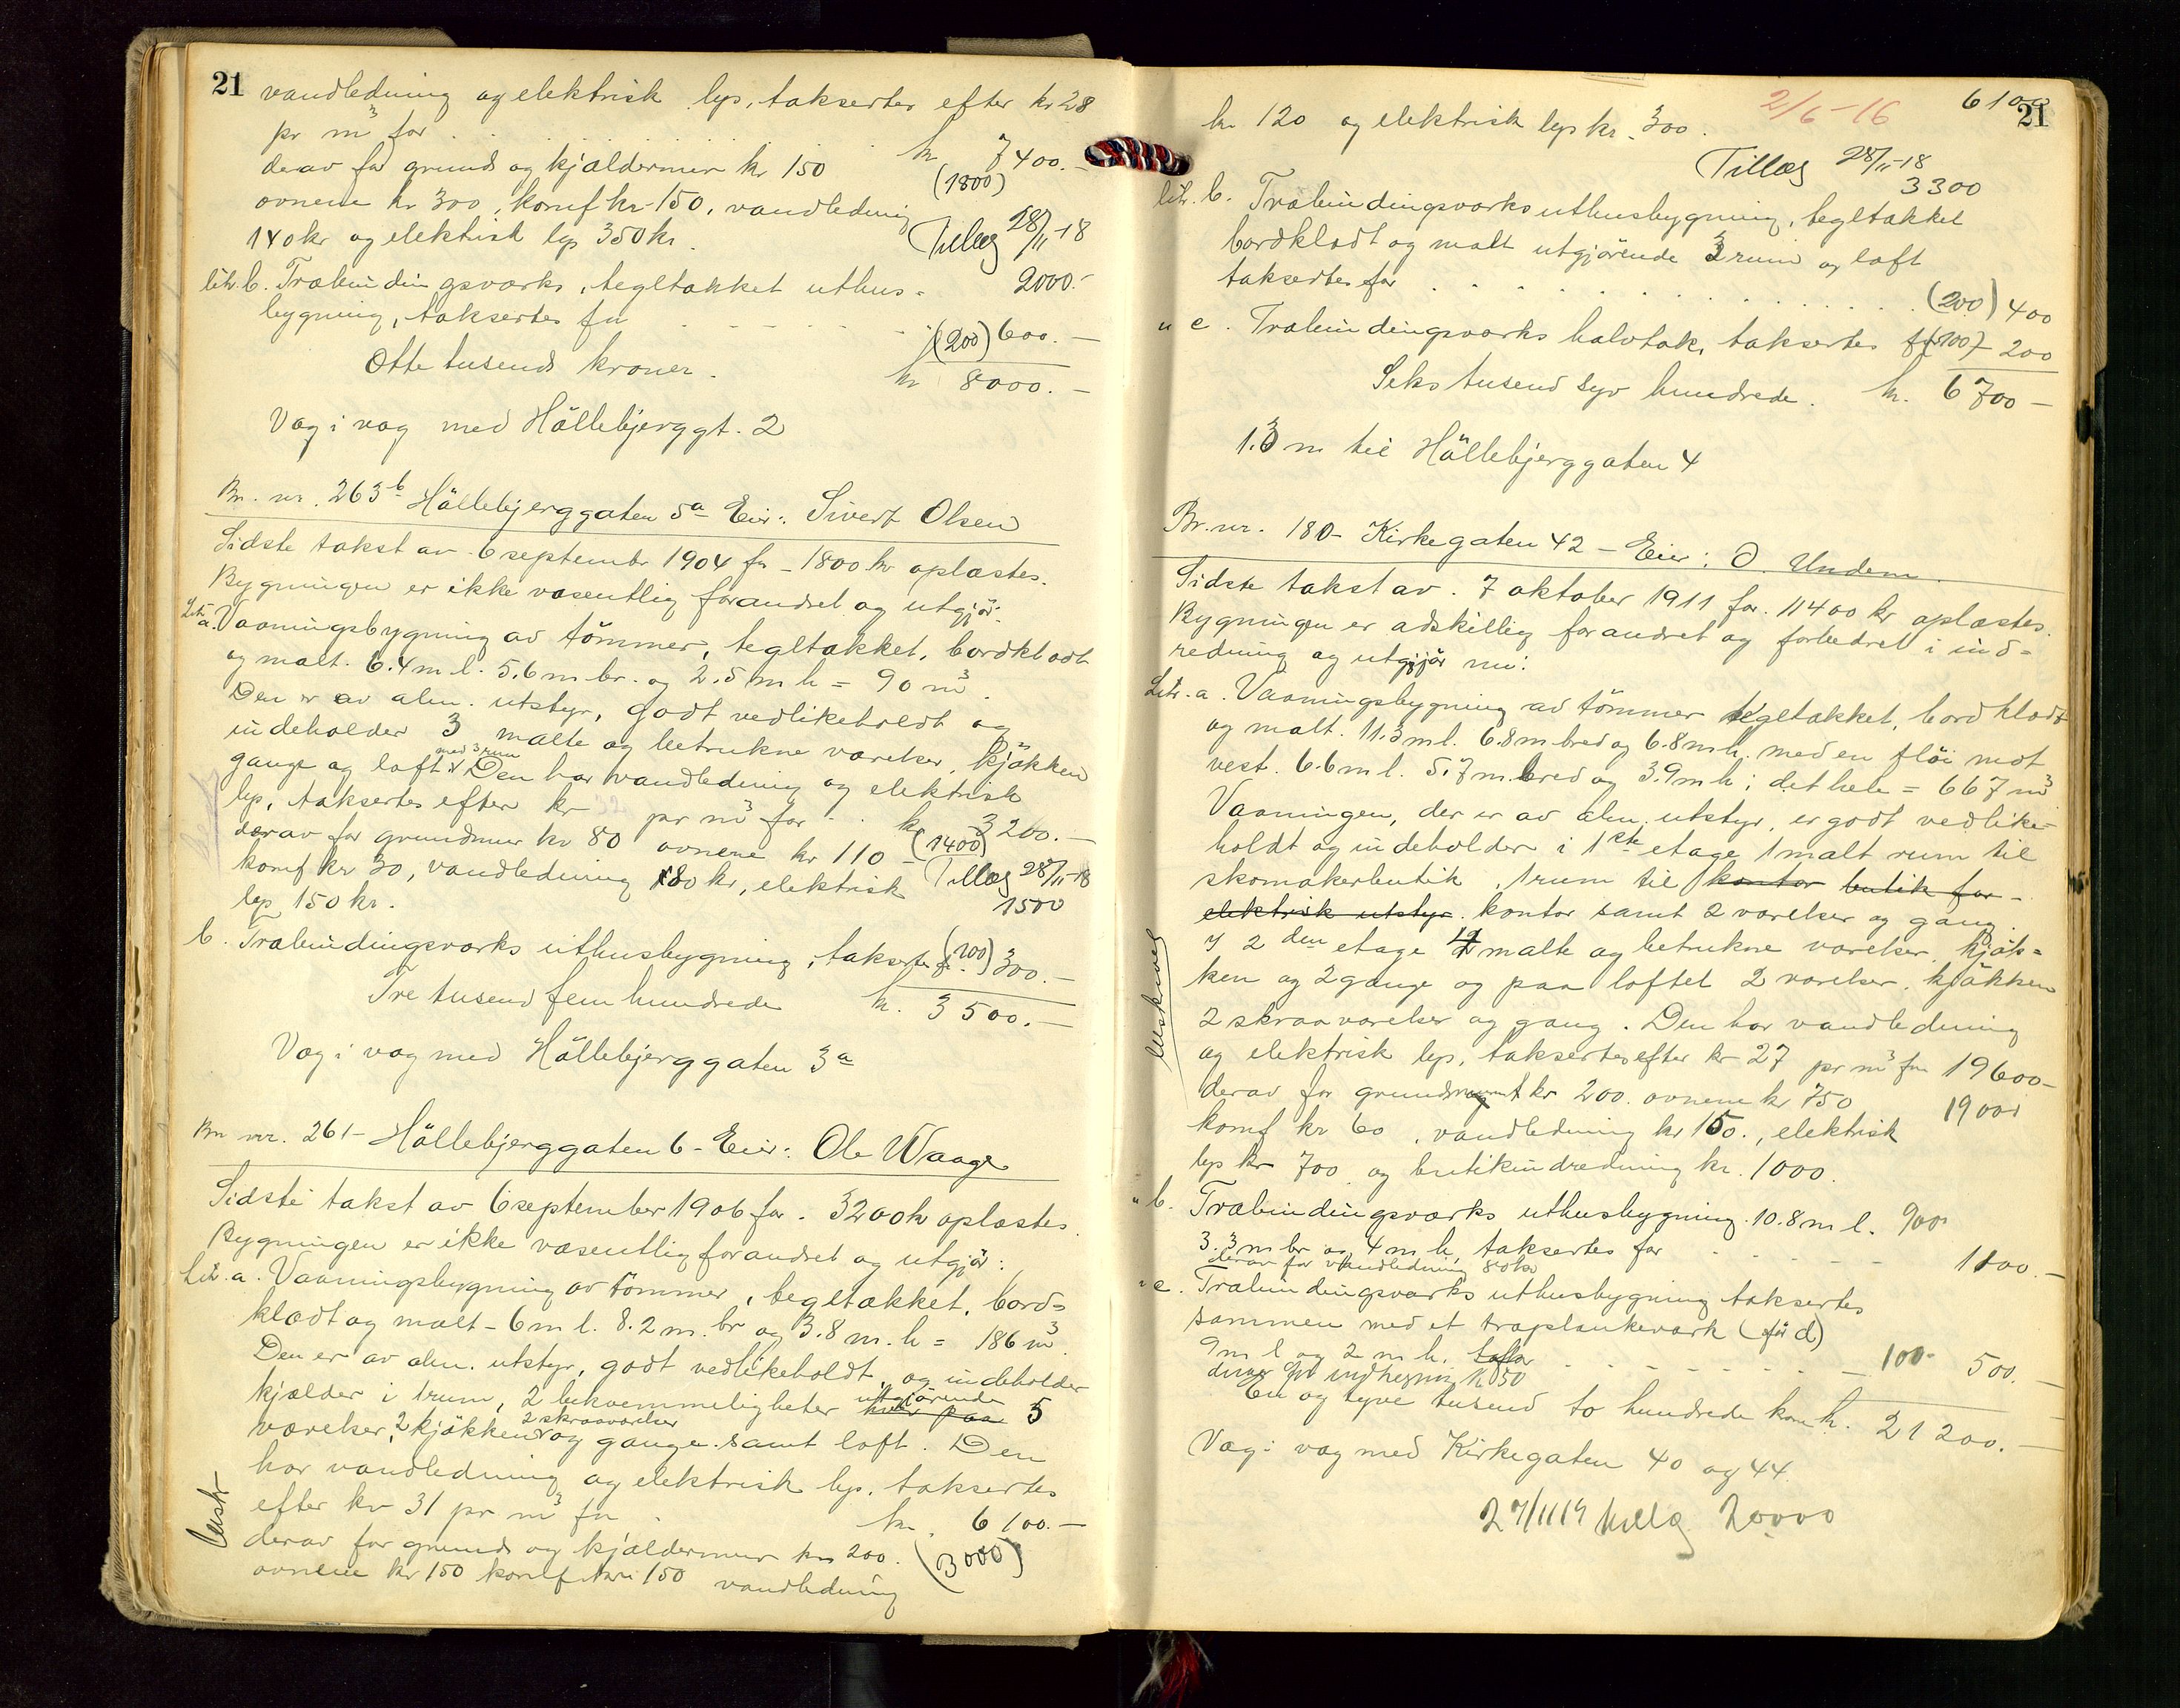 21 vandledning og elektrisk lys, taksertes efter kr 28
pr m³ for . . . kr 7400.-
derav for grund og kjældermur kr 150 (1800)
ovnene kr 300, komf kr 150, vandledning
140 kr og elektrisk lys 350 kr. Tillæg 28/11-18
2000.-
litr. b. Træbindingsværks, tegltakket uthus=
bygning, taksertes for - - - - (200) 600.-
Otte tusend kroner. kr 8000.-
Væg i væg med Höllebjerggt. 2
Br. nr. 263b Höllebjerggaten 5a Eier: Sivert Olsen
Sidste takst av 6 septembr 1904 for - 1800 kr oplæstes.
Bygningen er ikke væsentlig forandret og utgjör:
Litr. a. Vaaningsbygning av tömmer, tegltakket, bordklædt
og malt. 6.4 m l. 5.6 m br. og 2.5 m h = 90 m³.
Den er av alm. utstyr, godt vedlikeholdt og
indeholder 3 malte og betrukne værelser, kjökken
gange og loft med 3 rum. Den har vandledning og elektrisk
lys, taksertes efter kr pr m³ for . . kr 3200.-
derav for grundmur kr 80 ovnene kr 110 - (1400)
komf kr 30, vandledning 80 kr, elektrisk Tillæg 28/11-18
lys 150 kr. 1500
b. Træbindingsværks uthusbygning, taksertes for (200) 300.-
Tre tusend fem hundrede kr. 3500.-
Væg i væg med Höllebjerggaten 3a
Br nr. 261 - Höllebjerggaten 6 - Eier: Ole Waage
Sidste takst av 6 september 1906 for. 3200 kr oplæstes.
Bygningen er ikke væsentlig forandret og utgjör:
Litr. a. Vaaningsbygning av tömmer, tegltakket, bord=
klædt og malt - 6 m l. 8.2 m. br og 3.8 m. h = 186 m³.
Den er av alm. utstyr, godt vedlikeholdt, og indeholder
kjælder i 1 rum, 2 bekvemmeligheter hver paa utgjörende 5
værelser, 2 kjökkener 2 skraaværelser og gange samt loft. Den
har vandledning og elektrisk lys, taksertes
efter kr 31 pr m³ for . kr. 6100.-
derav for grund og kjældermur kr 200. (3000)
ovnene kr 150 komf kr 150 vandledning
2/6-16 6100 21
kr 120 og elektrisk lys kr. 300.
Tillæg 28/11-18
3300
litr. b. Træbindingsværks uthusbygning, tegltakket
bordklædt og malt utgjörende 3 rum og loft
taksertes for . . . . . (200) 400
" c. Træbindingsværks halvtak, taksertes for (100) 200
Seks tusend syv hundrede. kr. 6700 -
1.3 m til Höllebjerggaten 4
Br. nr. 180 - Kirkegaten 42 - Eier: O. Undem.
Sidste takst av. 7 oktober 1911 for. 11400 kr oplæstes.
Bygningen er adskillig forandret og forbedret i ind=
redning og utgjör nu:
Litr. a. Vaaningsbygning av tömmer tegltakket, bordklædt
og malt. 11.3 m l. 6.8 m bred og 6.8 m h. med en flöi mot
vest. 6.6 m l. 5.7 m. bred og 3.9 m h; det hele = 667 m³
Vaaningen, der er av alm. utstyr, er godt vedlike=
holdt og indeholder i 1ste etage 1 malt rum til
skomakerbutik, 1 rum til kontor butik for -
elektrisk utstyr. kontor samt 2 værelser og gang.
I 2den etage 4 malte og betrukne værelser, kjök=
ken og 2 gange og paa loftet 2 værelser. kjökken
2 skraaværelser og gang. Den har vandledning
og elektrisk lys, taksertes efter kr 27 pr m³ for 19600-
derav for grundmur kr 200. ovnene kr 750 19000
komf kr 60, vandledning kr 150., elektrisk
lys kr 700 og butikindredning kr. 1000.
" b. Træbindingsværks uthusbygning. 10.8 m l. 900
3.3 m br og 4 m h, taksertes for - - - 1100.-
derav for vandledning 80 kr
" c. Træbindingsværks uthusbygning taksertes
sammen med et træplankeværk (för d)
9 m l og 2 m h. - - - 100 500.-
derav for indhegnin. kr 50
En og tyve tusend to hundrede kron kr. 21200.-
Væg i væg med Kirkegaten 40 og 44.
27/11 19 Tillæg 20000